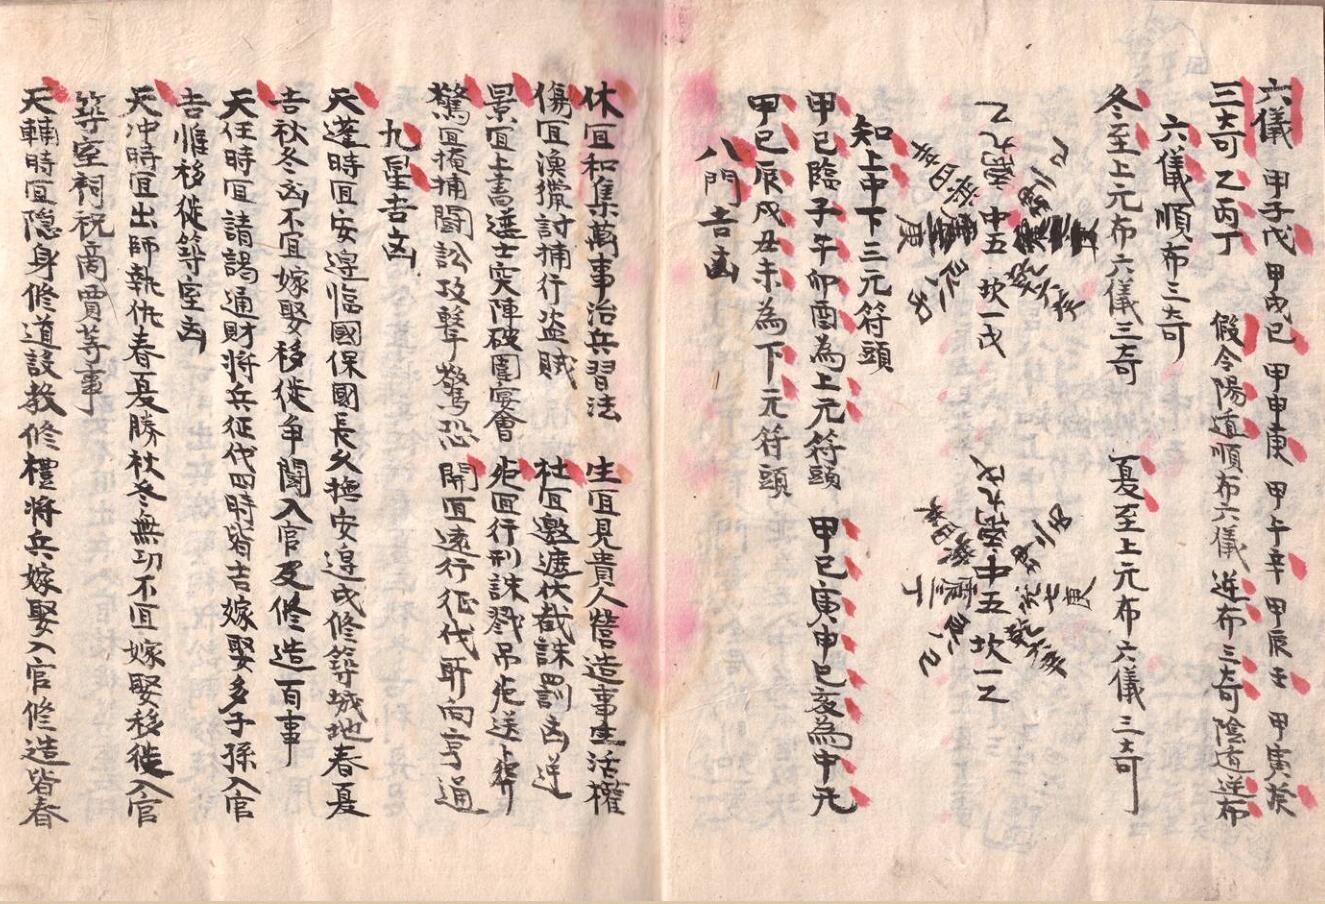 六儀 甲子戊 甲戌己 甲申庚 甲午辛 甲辰壬 甲寅癸
三奇 乙丙丁 假令陽遁順布六儀 逆布三奇 陰遁逆布
六儀順布三奇
冬至上元布六儀三奇 夏至上元布六儀三奇
乙
離九
中五
坎一戊
庚
乾六辛
離九戊
中五
坎一乙
乾六辛
七庚
知上中下三元符頭
甲己臨子午卯酉為上元符頭 甲己寅申巳亥為中元
甲己辰戌丑未為下元符頭
八門吉凶
休宜和集萬事治兵習法 生宜見貴人營造事生活權
傷宜漁獵討捕行盜賊 杜宜邀遮伏截誅罰凶逆
景宜上書進士突陣破圍宴會 死宜行刑誅戮吊死送葬
驚宜掩捕鬪訟攻擊驚恐 開宜遠行征伐所向亨通
九星吉凶
天蓬時宜安邊臨國保國長久撫安邊戍修築城地春夏
吉秋冬凶不宜嫁娶移徙爭鬪入官及修造百事
天任時宜請謁通財將兵征伐四時皆吉嫁娶多子孫入官
吉惟移徙築室凶
天冲時宜出師執仇春夏勝秋冬無功不宜嫁娶移徙入官
築室祠祝商賈等事
天輔時宜隐身修道設教修禮將兵嫁娶入官修造皆春